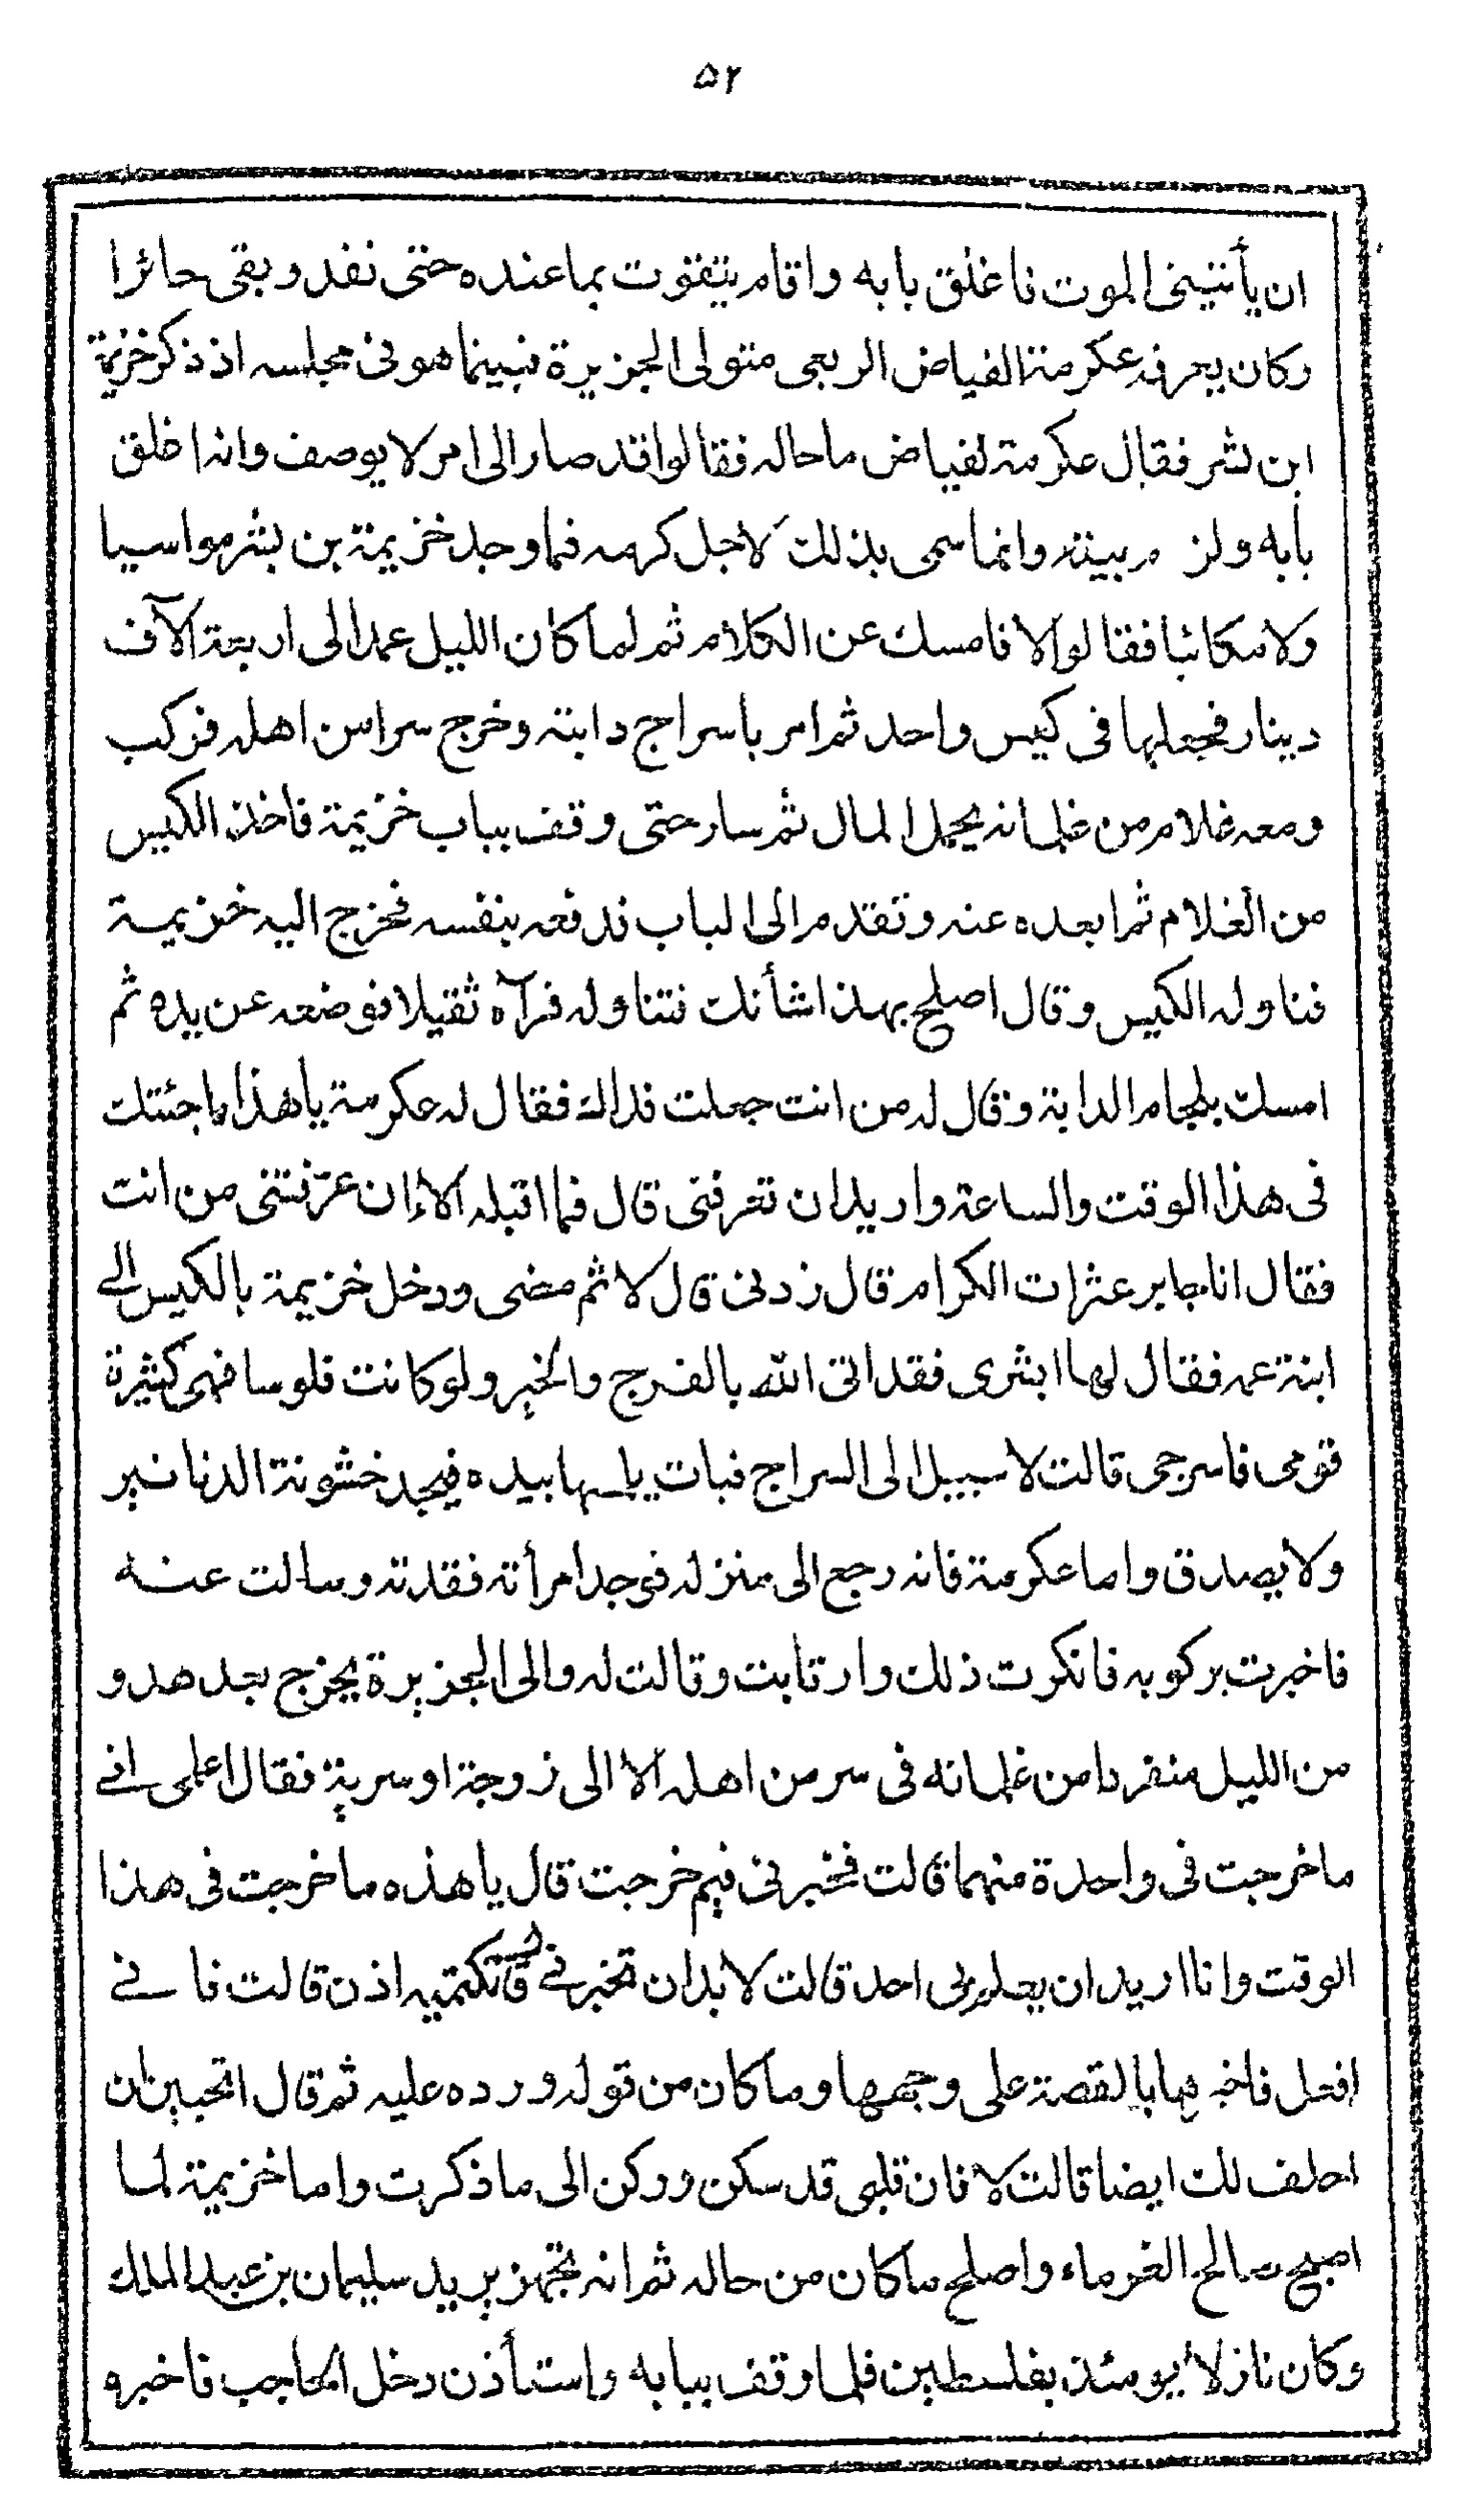 ۵۲
ان يأتينى الموت فاغلق بابه واقام يتقوت بما عنده حتى نفد وبقى حائرا
وكان يعرفه عكرمة الفياض الربعى متولى الجزيرة فبينما هو فى مجلسه اذ ذكر خزيمة
ابن بشر فقال عكرمة لفياض ما حاله فقالوا قد صار الى امر لا يوصف وانه اغلق
بابه ولزم بيته وانما سمى بذلك لاجل كرمه فما وجد خزيمة بن بشر مواسيا
ولا مكافئا فقالوا لا فامسك عن الكلام ثم لما كان الليل عمد الى اربعة الآف
دينار فجعلها فى كيس واحد ثم امر باسراج دابته وخرج سرا من اهله فركب
ومعه غلام من غلمانه يحمل المال ثم سار حتى وقف بباب خزيمة فاخذ الكيس
من الغلام ثم ابعده عنه وتقدم الى الباب فدفعه بنفسه فخرج اليه خزيمة
فناوله الكيس وقال اصلح بهذا شأنك فتناوله فرآه ثقيلا فوضعه عن يده ثم
امسك بلجام الدابة وقال له من انت جعلت فداك فقال له عكرمة يا هذا ما جئتك
فى هذا الوقت والساعة واريد ان تعرفنى قال فما اقبله الا ان عرّفتنى من انت
فقال انا جابر عثرات الكرام قال زدنى قال لا ثم مضى ودخل خزيمة بالكيس الى
ابنة عمه فقال لها ابشرى فقد اتى الله بالفرج والخير ولو كانت فلوسا فهى كثيرة
قومى فاسرجى قالت لا سبيل الى السراج فبات يلمسها بيده فيجد خشونة الدنانير
ولا يصدق واما عكرمة فانه رجع الى منزله فوجد امرأته فقدته وسالت عنه
فاخبرت بركوبه فانكرت ذلك وارتابت وقالت له والى الجزيرة يخرج بعد هدو
من الليل منفردا من غلمانه فى سر من اهله الا الى زوجة او سرية فقال اعلمى انى
ما خرجت فى واحدة منهما قالت فخبرنى فيم خرجت قال يا هذه ما خرجت فى هذا
الوقت وانا اريد ان يعلم بى احد قالت لا بد ان تخبرنى قال فاكتميه اذن قالت فانى
افعل فاخبرها بالقصة على وجهها وما كان من قوله ورده عليه ثم قال اتحبين ان
احلف لك ايضا قالت لا فان قلبى قد سكن وركن الى ما ذكرت واما خزيمة لما
اصبح صالح الغرماء واصلح ما كان من حاله ثم انه تجهز يريد سليمان بن عبد الملك
وكان نازلا يومئذ بفلسطين فلما وقف ببابه واستأذن دخل الحاجب فاخبره